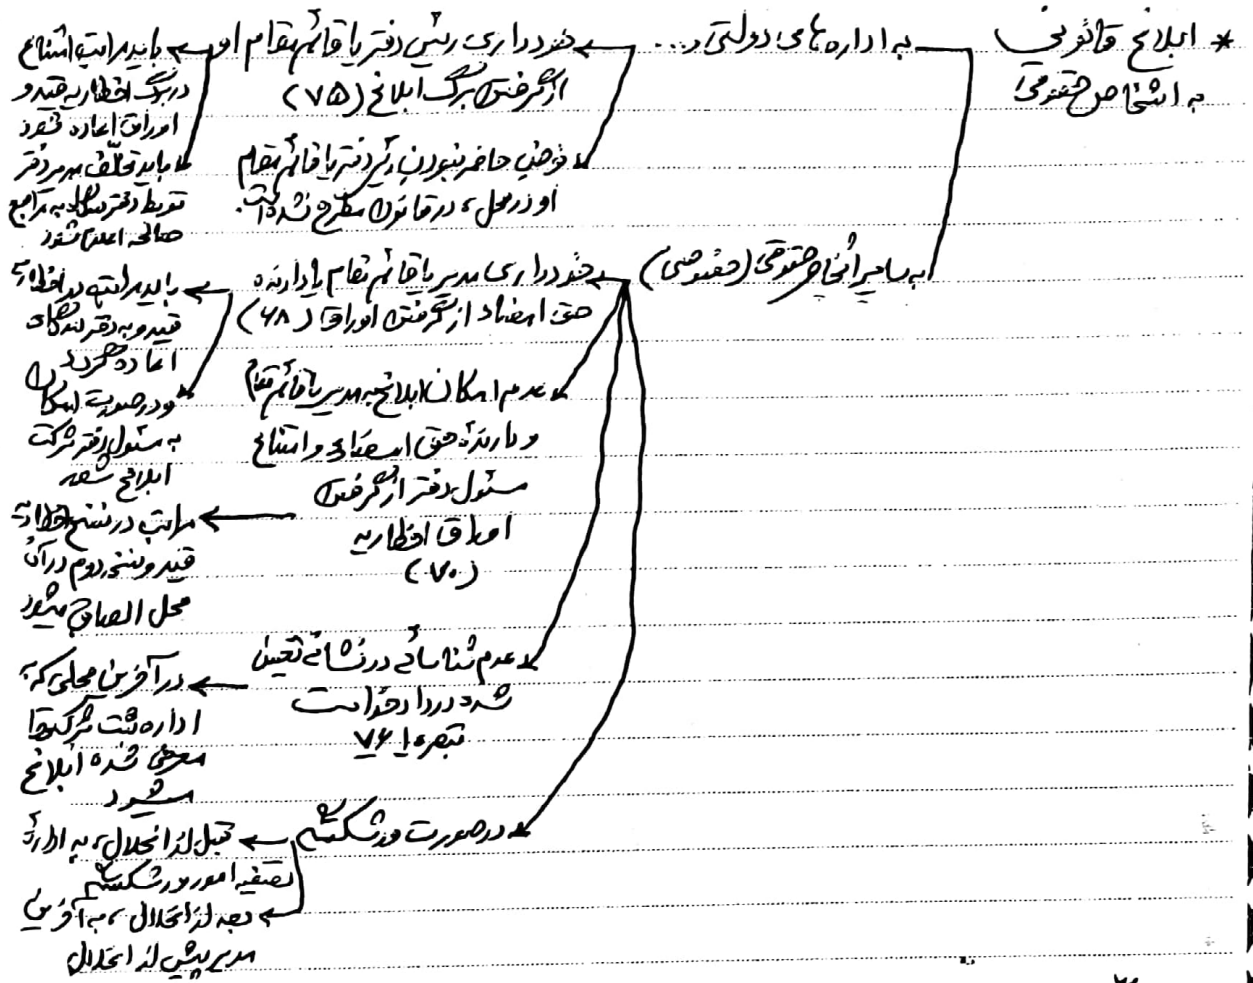 * ابلاغ قانونی
به اشخاص حقوقی
به اداره های دولتی و...
خودداری رئیس دفتر یا قائم مقام او
از گرفتن برگ ابلاغ (۷۵)
باید مراتب امتناع
در برگ اخطاریه قید و
اوراق اعاده شود
باید تخلف مدیر دفتر
توسط دفتر دادگاه به مراجع
صالحه اعلام شود
فرض حاضر نبودن رئیس دفتر یا قائم مقام
او در محل، در قانون مطرح نشده است.
به سایر اشخاص حقوقی (خصوصی)
خودداری مدیر یا قائم مقام یا دارنده
حق امضاء از گرفتن اوراق (۶۸)
باید مراتب در اخطاریه
قید و به دفتر دادگاه
اعاده گردد
و در صورت امکان
به مسئول دفتر شرکت
ابلاغ شود
عدم امکان ابلاغ به مدیر یا قائم مقام
و دارندهٔ حق امضاء و امتناع
مسئول دفتر از گرفتن
اوراق اخطاریه
(۷۰)
مراتب در نسخ اخطاریه
قید و نسخه دوم در آن
محل الصاق میشود
عدم شناسائی در نشانی تعیین
شده در دادخواست
تبصره ۱ ۷۶
در آخرین محلی که به
اداره ثبت شرکتها
معرفی شده ابلاغ
میشود
در صورت ورشکستگی
قبل از انحلال، به ادارهٔ
تصفیه امور ورشکستگی
بعد از انحلال، به آخرین
مدیر پیش از انحلال